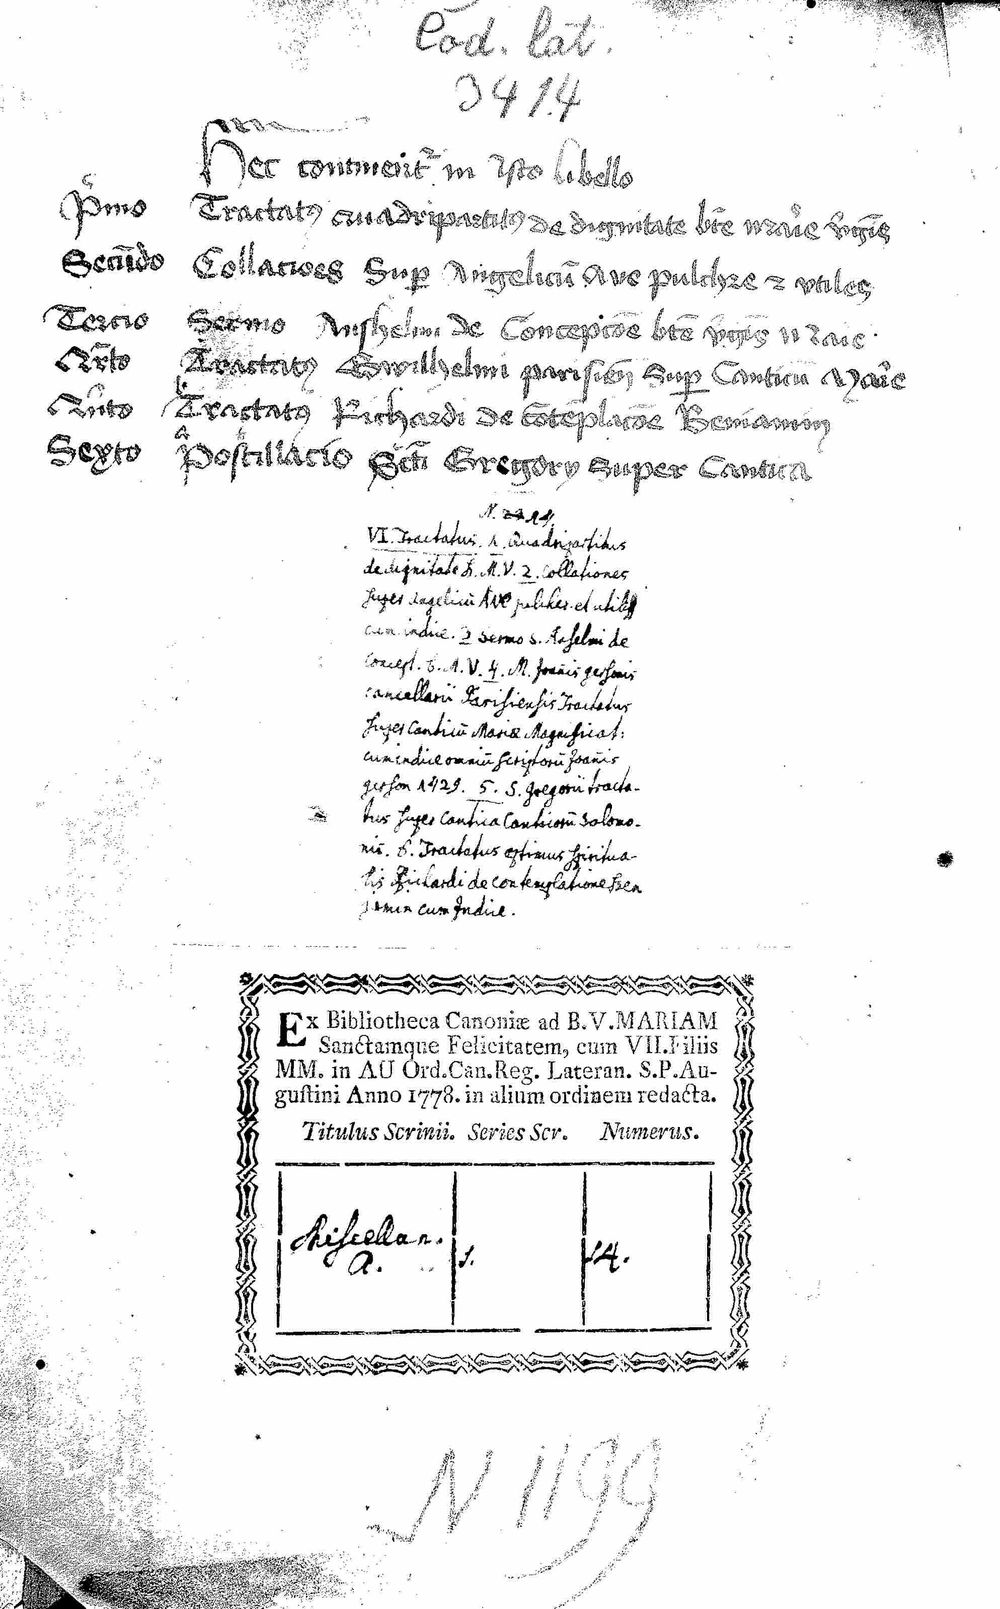 Cod. lat.
3414
Hec continent᷑ in Isto libello
P͛mo Tractatꝰ quadripartitꝰ de dignitate bt̄e marie v͛gīs
Secūdo Collacōes Sup̱ Angelicū Ave pulchre ⁊ vtiles
Tercio Sermo Anshelmi de Concepcōe bt̄e v͛gīs marie
Qr̄to Tractatꝰ Gwilhelmi parisieñ Sup̱ Canticū Marie
Qn̄to Tractatꝰ Richardi de cōtēplacōe Beniamin
Sexto Postillacio Scti Gregory super Cantica
VI. Tractatus. 1. Quadripartitus
de dignitate B. M. V. 2. Collationes
super Angelicū Ave pulchre et utiles
cum indice. 3 Sermo S. Anselmi de
concept. B. M. V. 4. M. Joañis gersonis
cancellarii Parisiensis Tractatus
super Canticū Mariæ Magnificat:
cum indice omniū scriptorū Joañis
gerson 1429. 5. S. gregorii tracta-
tus super Cantica Canticorū Salomo-
nis. 6. Tractatus optimus spiritua-
lis Richardi de contemplatione Ben
jamin cum Indice.
Ex Bibliotheca Canoniæ ad B.V.MARIAM
Sanctamque Felicitatem, cum VII.Filiis
MM. in AU Ord.Can.Reg. Lateran. S.P.Au-
gustini Anno 1778. in alium ordinem redacta.
Titulus Scrinii. Series Scr. Numerus.
Miscellan. 1. 14.
A.
N 1199